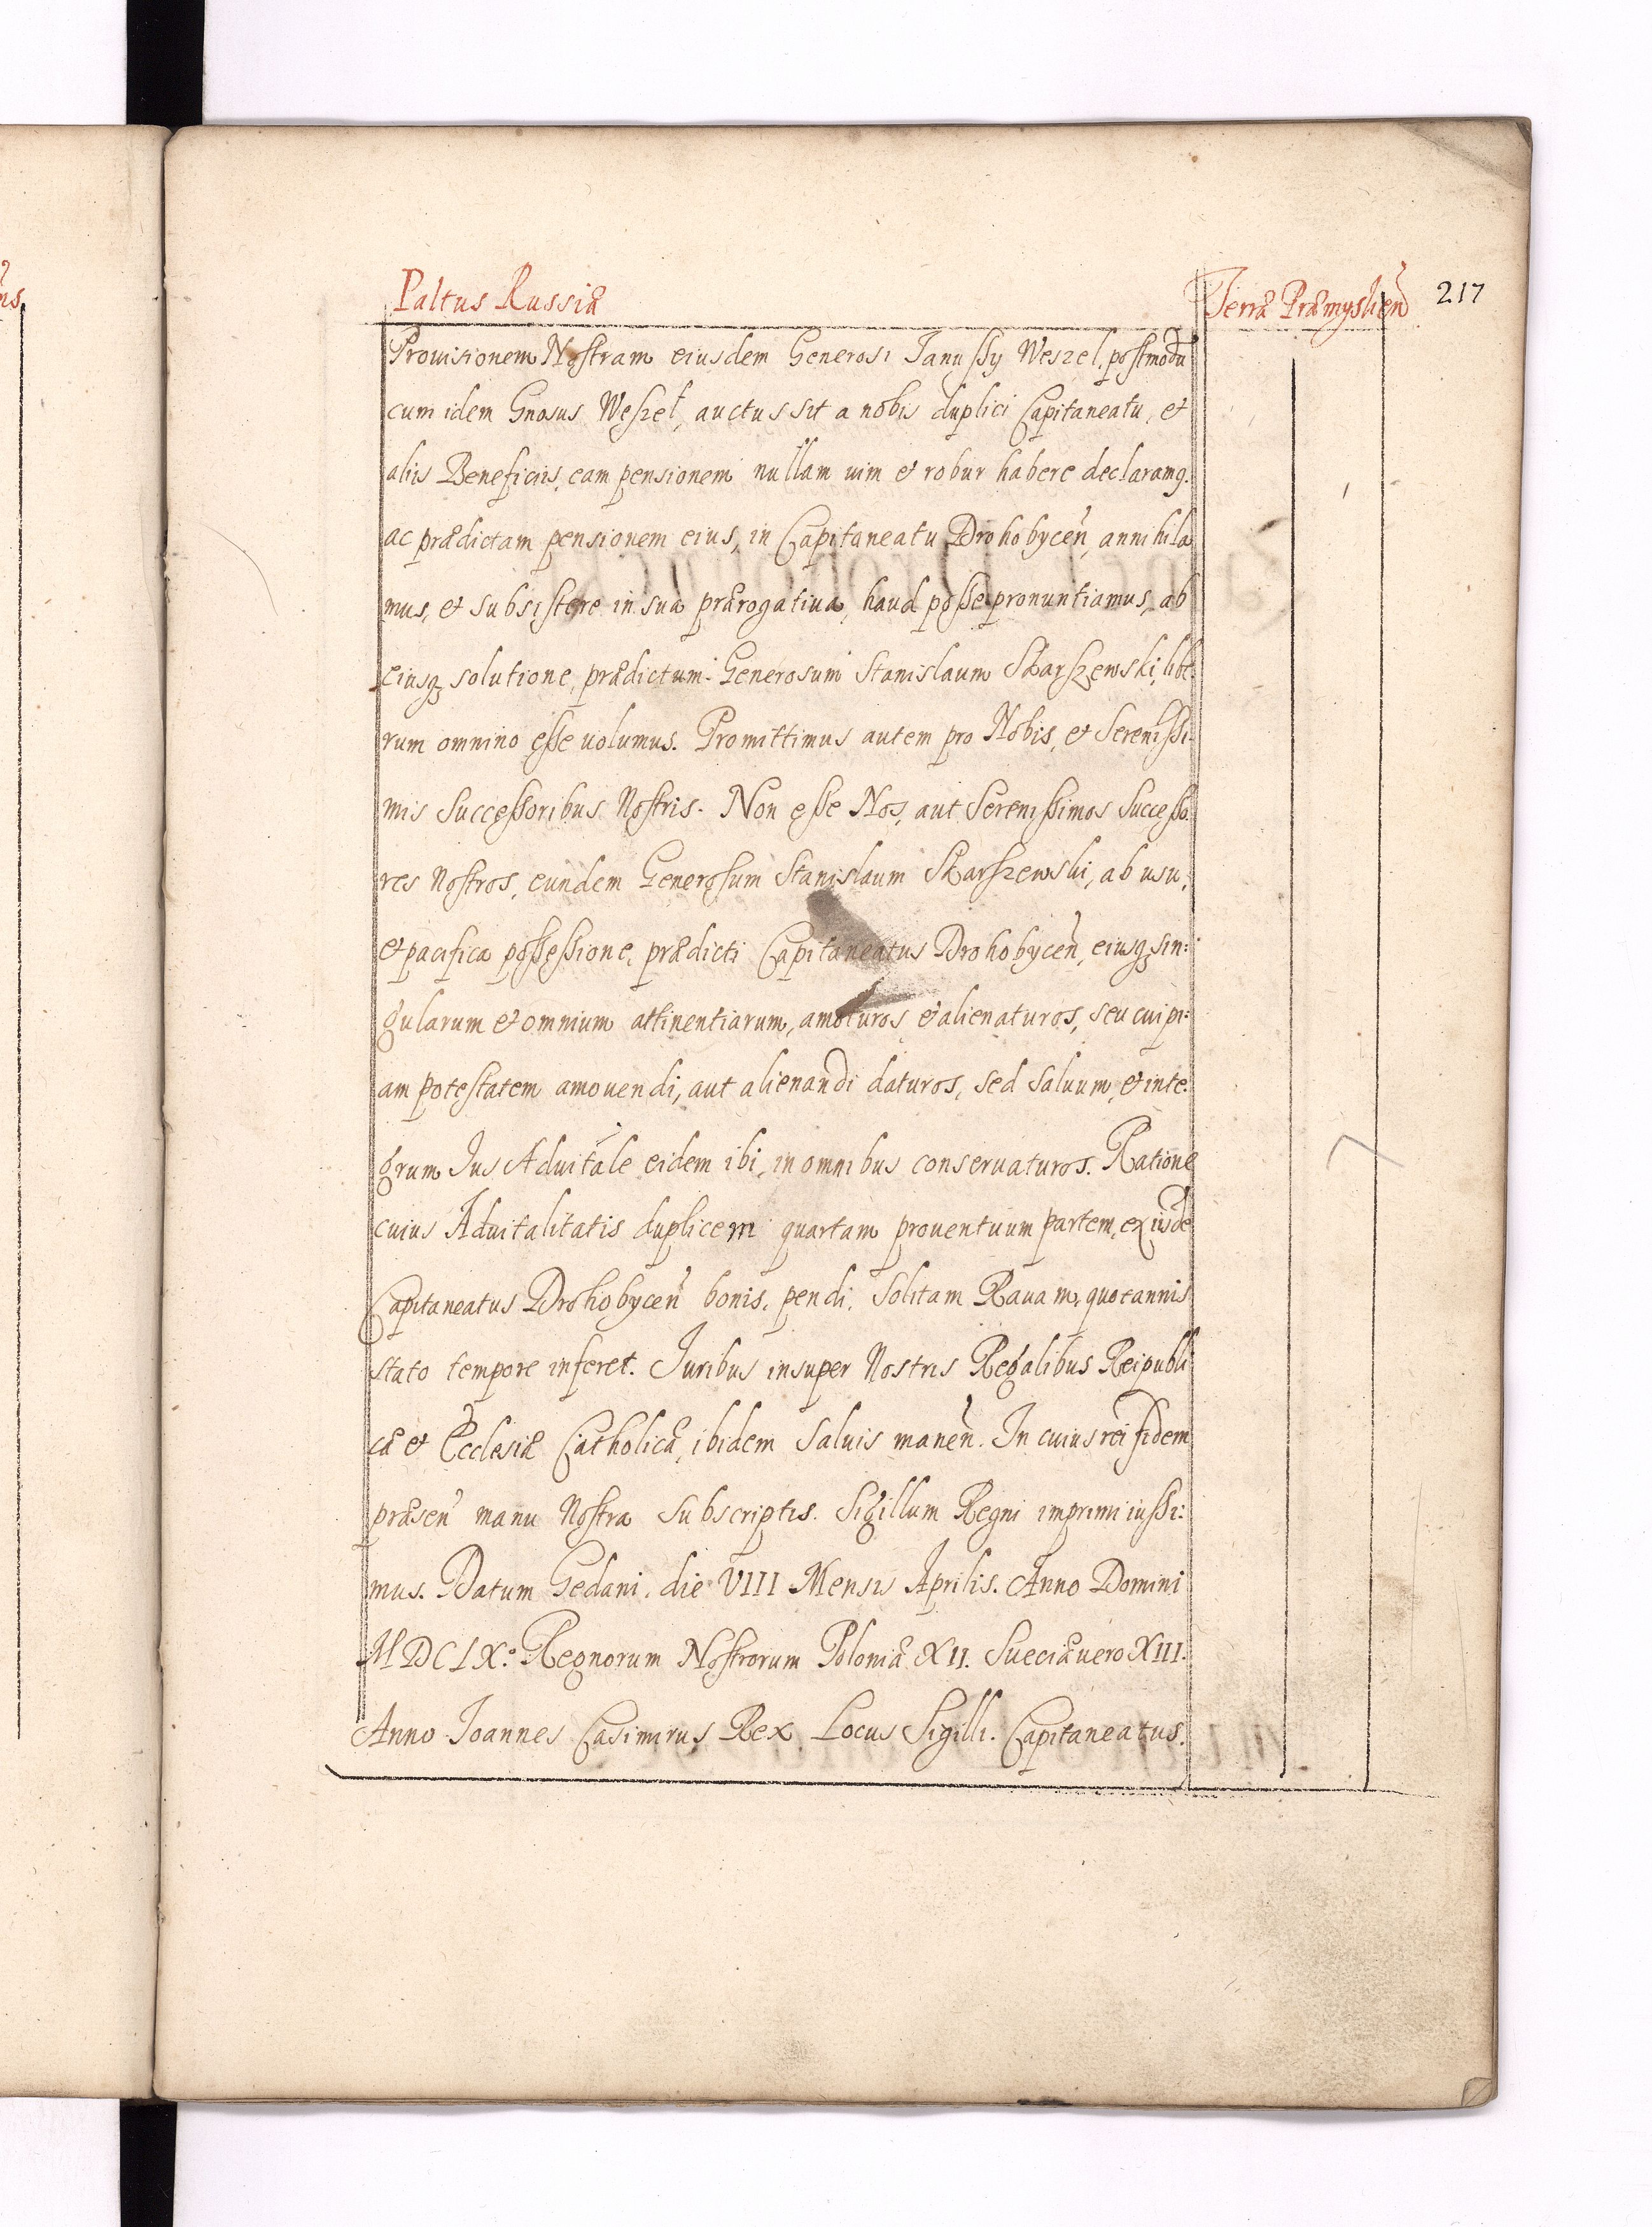 Paltus Russiæ
Terræ Præmyslien̄ 217
Prouisionem Nostram eiusdem Generosi Janussy Weszel, postmodū
cum idem Gnosus Weszel, auctus sit a nobis duplici Capitaneatu, et
aliis Beneficiis, eam pensionem nullam uim et robur habere declaramq.
ac prædictam pensionem eius, in Capitaneatu Drohobycen̄, annihila
mus, et subsistere in sua prærogatiua, haud posse pronuntiamus, ab
eiusq solutione, prædictum Generosum Stanislaum Skarszewski, libe
rum omnino esse uolumus. Promittimus autem pro Nobis, et Serenissi
mis Successoribus Nostris. Non esse Nos, aut Serenissimos Successo
res Nostros, eundem Generosum Stanislaum Skarszewski, ab usu,
et pacifica possessione, prædicti Capitaneatus Drohobycen̄, eiusq sin:
gularum et omnium attinentiarum, amoturos, et alienaturos, seu cuipi:
am potestatem amouendi, aut alienandi daturos, sed saluum, et inte:
grum Jus Aduitale eidem ibi, in omnibus conseruaturos. Ratione
cuius Aduitalitatis duplicem quartam prouentuum partem, ex iisdē
Capitaneatus Drohobycen̄ bonis, pendi, solitam Rauam, quotannis
stato tempore inferet. Juribus insuper Nostris Regalibus Reipubli
cæ et Ecclesiæ Catholicæ, ibidem saluis manen̄. In cuius rei fidem
præsen̄ manu Nostra subscriptis. Sigillum Regni imprimi iussi:
mus. Datum Gedani, die VIII Mensis Aprilis. Anno Domini
MDCLX.º Regnorum Nostrorum Poloniæ XII. Sueciæ uero XIII.
Anno Joannes Casimirus Rex Locus Sigilli. Capitaneatus.